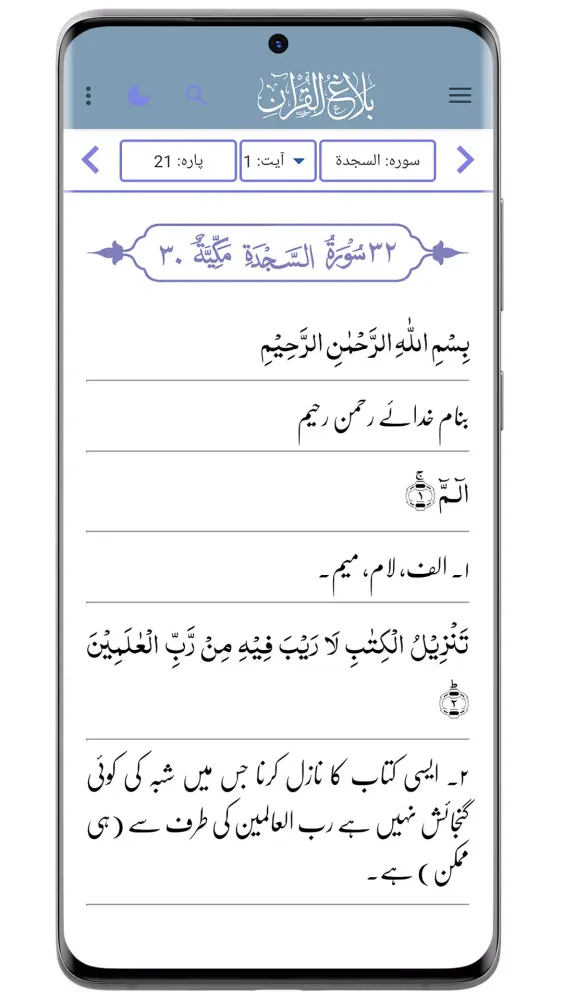 بلاغ القرآن
سورہ: السجدة
آیت: 1
پارہ: 21
٣٢ سُوْرَةُ السَّجْدَةِ مَكِّيَّةٌ ٣٠
بِسْمِ اللّٰهِ الرَّحْمٰنِ الرَّحِيْمِ
بنام خدائے رحمن رحیم
الٓـمّٓ ۚ﴿۱﴾
۱۔ الف، لام، میم۔
تَنْزِيْلُ الْكِتٰبِ لَا رَيْبَ فِيْهِ مِنْ رَّبِّ الْعٰلَمِيْنَ
ؕ﴿۲﴾
۲۔ ایسی کتاب کا نازل کرنا جس میں شبہ کی کوئی
گنجائش نہیں ہے رب العالمین کی طرف سے (ہی
ممکن ) ہے۔